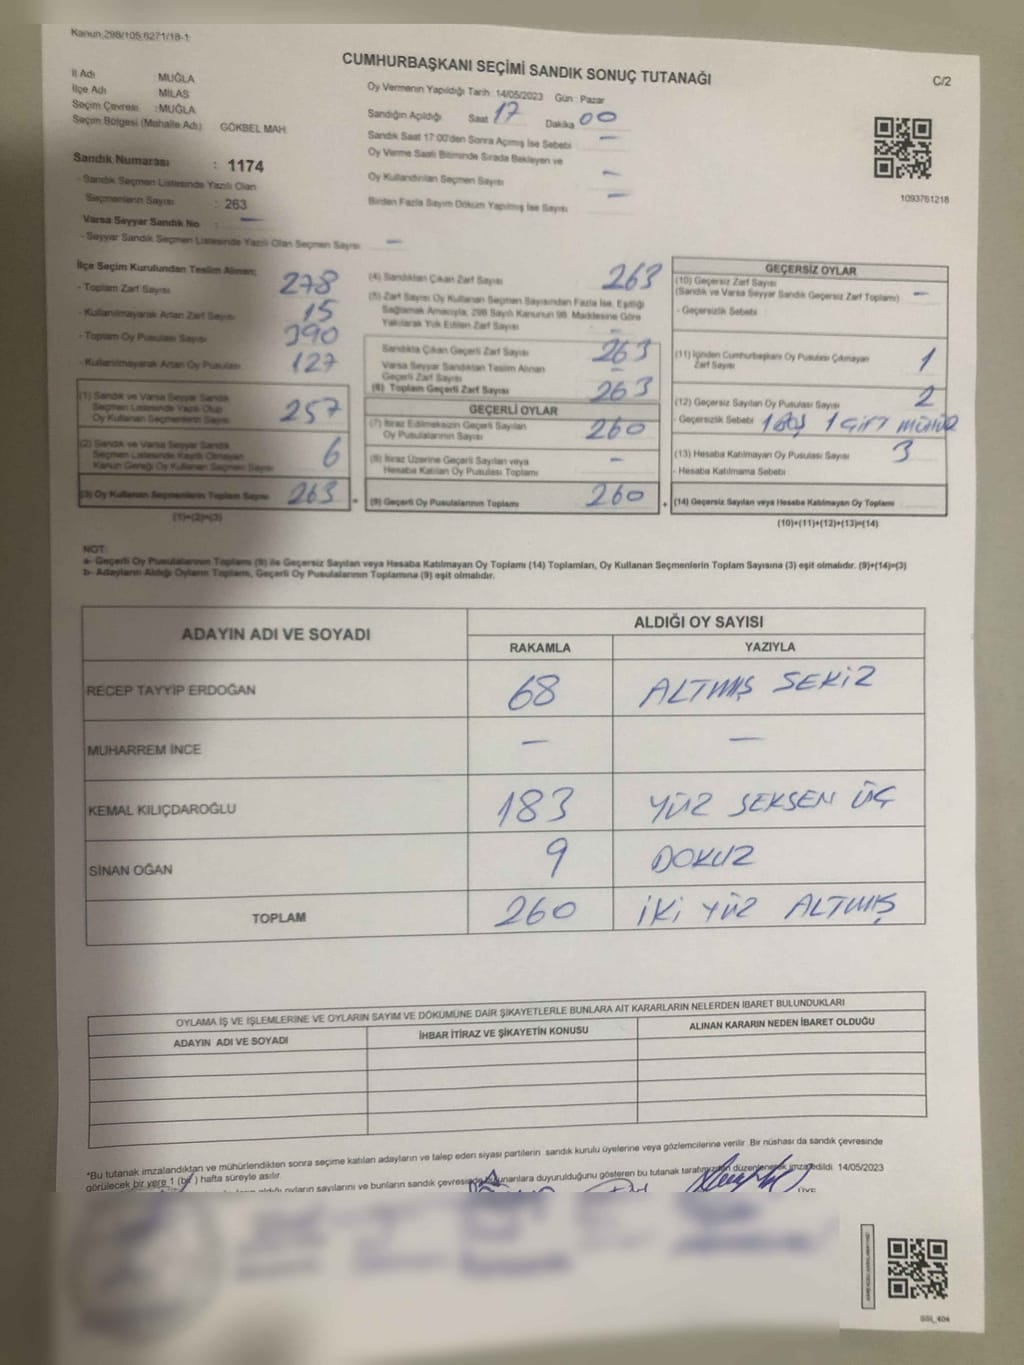 Kanun:298/105;6271/18-1
CUMHURBAŞKANI SEÇİMİ SANDIK SONUÇ TUTANAĞI
C/2
İl Adı : MUĞLA
İlçe Adı : MİLAS
Seçim Çevresi : MUĞLA
Seçim Bölgesi (Mahalle Adı) GÖKBEL MAH.
Oy Vermenin Yapıldığı Tarih :14/05/2023 Gün : Pazar
Sandığın Açıldığı Saat 17 Dakika 00
Sandık Saat 17:00'den Sonra Açımış İse Sebebi —
Oy Verme Saati Bitiminde Sırada Bekleyen ve
Oy Kullandırılan Seçmen Sayısı —
Birden Fazla Sayım Döküm Yapılmış İse Sayısı —
1093761218
Sandık Numarası : 1174
- Sandık Seçmen Listesinde Yazılı Olan
Seçmenlerin Sayısı : 263
Varsa Seyyar Sandık No : —
- Seyyar Sandık Seçmen Listesinde Yazılı Olan Seçmen Sayısı: —
İlçe Seçim Kurulundan Teslim Alınan;
- Toplam Zarf Sayısı 278
- Kullanılmayarak Artan Zarf Sayısı 15
- Toplam Oy Pusulası Sayısı 390
- Kullanılmayarak Artan Oy Pusulası 127
(1) Sandık ve Varsa Seyyar Sandık
Seçmen Listesinde Yazılı Olup
Oy Kullanan Seçmenlerin Sayısı 257
(2) Sandık ve Varsa Seyyar Sandık
Seçmen Listesinde Kayıtlı Olmayan
Kanun Gereği Oy Kullanan Seçmen Sayısı 6
(3) Oy Kullanan Seçmenlerin Toplam Sayısı 263
(1)+(2)=(3)
(4) Sandıktan Çıkan Zarf Sayısı 263
(5) Zarf Sayısı Oy Kullanan Seçmen Sayısından Fazla İse, Eşitliği
Sağlamak Amacıyla, 298 Sayılı Kanunun 98. Maddesine Göre
Yakılarak Yok Edilen Zarf Sayısı —
Sandıkta Çıkan Geçerli Zarf Sayısı 263
Varsa Seyyar Sandıktan Teslim Alınan
Geçerli Zarf Sayısı —
(6) Toplam Geçerli Zarf Sayısı 263
GEÇERLİ OYLAR
(7) İtiraz Edilmeksizin Geçerli Sayılan
Oy Pusulalarının Sayısı 260
(8) İtiraz Üzerine Geçerli Sayılan veya
Hesaba Katılan Oy Pusulası Toplamı —
(9) Geçerli Oy Pusulalarının Toplamı 260
GEÇERSİZ OYLAR
(10) Geçersiz Zarf Sayısı
(Sandık ve Varsa Seyyar Sandık Geçersiz Zarf Toplamı) —
- Geçersizlik Sebebi
(11) İçinden Cumhurbaşkanı Oy Pusulası Çıkmayan
Zarf Sayısı 1
(12) Geçersiz Sayılan Oy Pusulası Sayısı 2
- Geçersizlik Sebebi 1 Boş 1 Çift mühür
(13) Hesaba Katılmayan Oy Pusulası Sayısı 3
- Hesaba Katılmama Sebebi
(14) Geçersiz Sayılan veya Hesaba Katılmayan Oy Toplamı
(10)+(11)+(12)+(13)=(14)
NOT:
a- Geçerli Oy Pusulalarının Toplamı (9) ile Geçersiz Sayılan veya Hesaba Katılmayan Oy Toplamı (14) Toplamları, Oy Kullanan Seçmenlerin Toplam Sayısına (3) eşit olmalıdır. (9)+(14)=(3)
b- Adayların Aldığı Oyların Toplamı, Geçerli Oy Pusulalarının Toplamına (9) eşit olmalıdır.
ADAYIN ADI VE SOYADI
ALDIĞI OY SAYISI
RAKAMLA YAZIYLA
RECEP TAYYİP ERDOĞAN 68 ALTMIŞ SEKİZ
MUHARREM İNCE — —
KEMAL KILIÇDAROĞLU 183 YÜZ SEKSEN ÜÇ
SİNAN OĞAN 9 DOKUZ
TOPLAM 260 İKİ YÜZ ALTMIŞ
OYLAMA İŞ VE İŞLEMLERİNE VE OYLARIN SAYIM VE DÖKÜMÜNE DAİR ŞİKAYETLERLE BUNLARA AİT KARARLARIN NELERDEN İBARET BULUNDUKLARI
ADAYIN ADI VE SOYADI İHBAR İTİRAZ VE ŞİKAYETİN KONUSU ALINAN KARARIN NEDEN İBARET OLDUĞU
*Bu tutanak imzalandıktan ve mühürlendikten sonra seçime katılan adayların ve talep eden siyasi partilerin sandık kurulu üyelerine veya gözlemcilerine verilir. Bir nüshası da sandık çevresinde
görülecek bir yere 1 (bir) hafta süreyle asılır.
oyların sayılarını ve bunların sandık çevresinde bulunanlara duyurulduğunu gösteren bu tutanak tarafımızdan düzenlenerek imza edildi. 14/05/2023
ÜYE